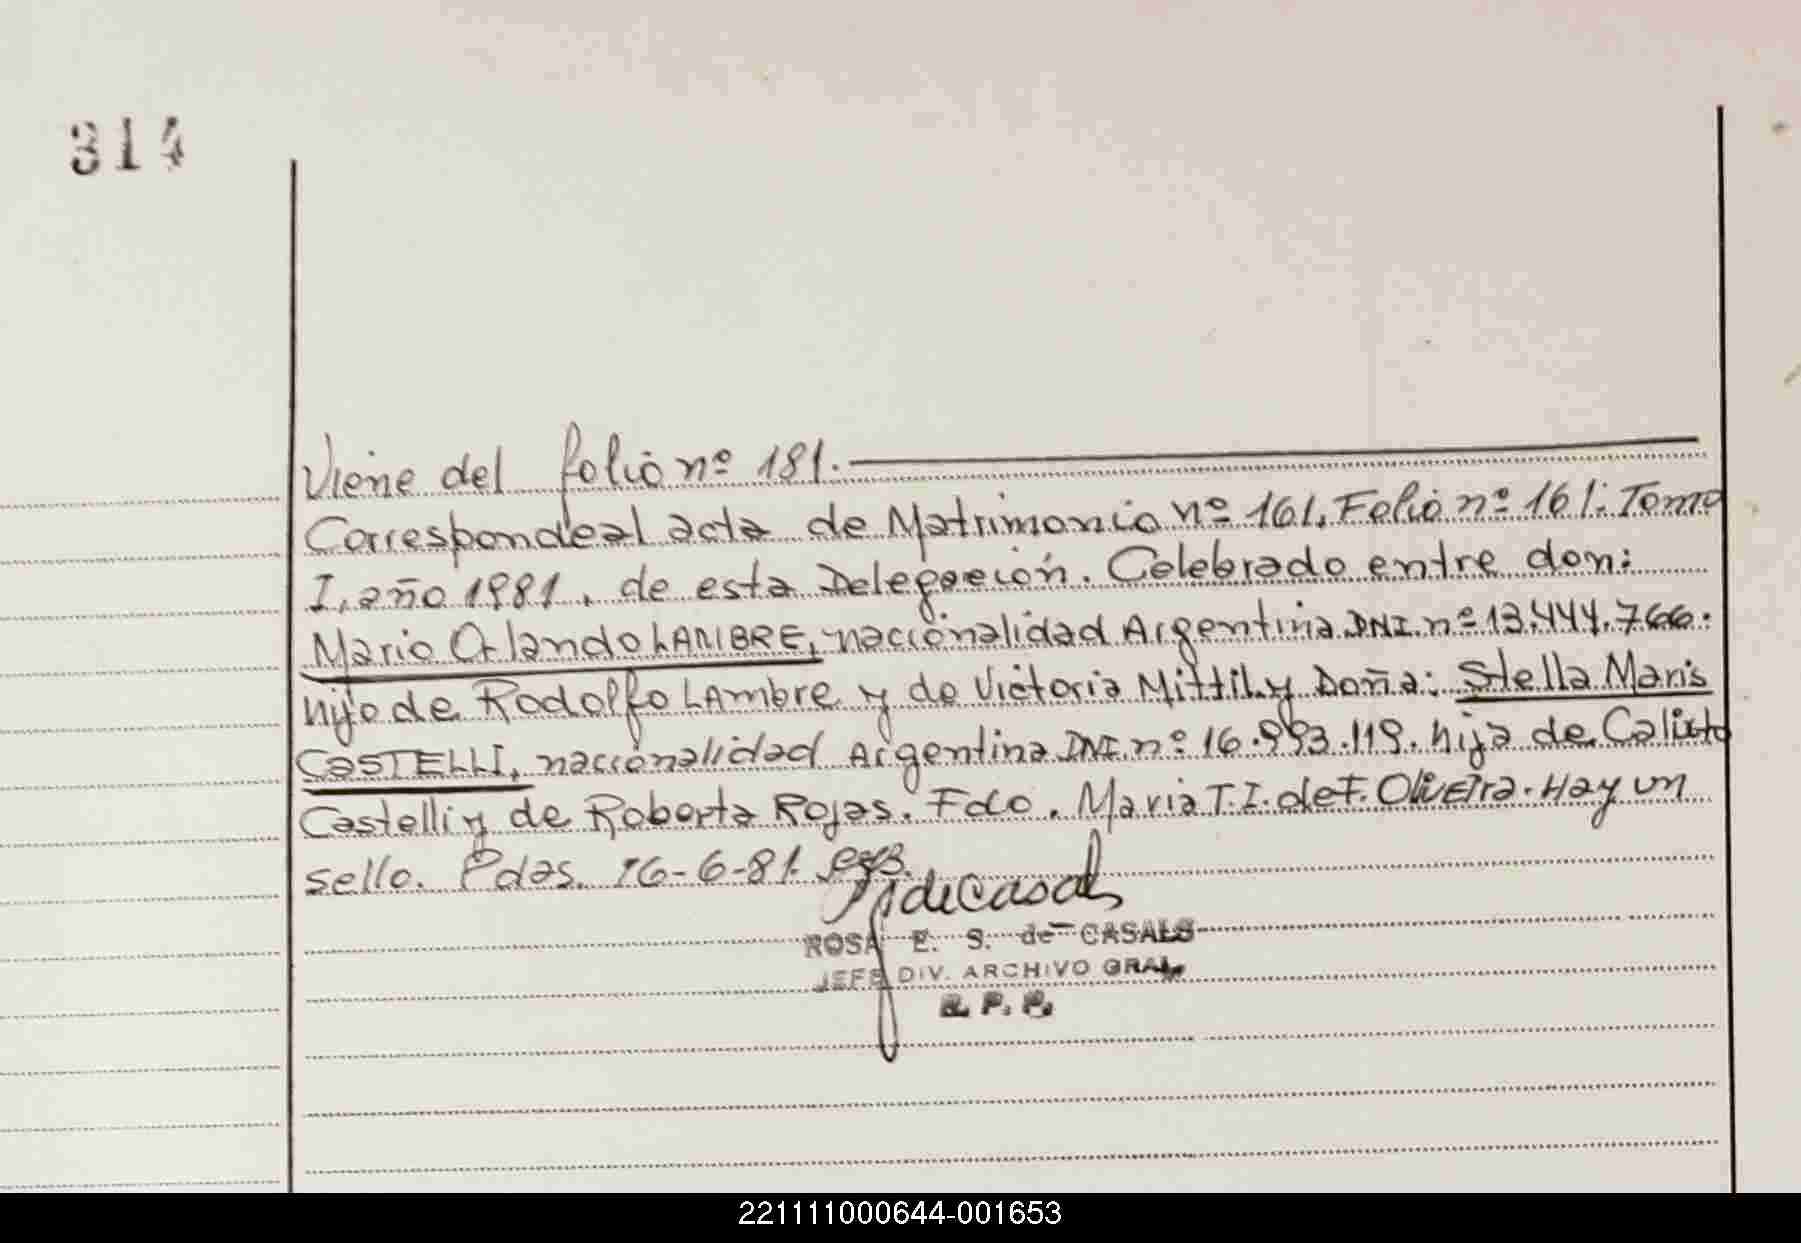 314
Viene del folio nº 181.
Corresponde al acta de Matrimonio nº 161, Folio nº 161. Tomo
I, año 1981, de esta Delegación. Celebrado entre don:
Mario Orlando LAMBRE, nacionalidad Argentina DNI. nº 13.444.766.
hijo de Rodolfo LAmbre y de Victoria Mittil y Doña: Stella Maris
CASTELLI, nacionalidad Argentina DNI. nº 16.993.119. hija de Calixto
Castelli y de Roberta Rojas. Fdo. Maria T. I. de F. OliVEIra. Hay un
sello. Pdas. 16-6-81.
deCasals
ROSA E. S. de CASALS
JEFE DIV. ARCHIVO GRAL.
R. P. P.
221111000644-001653